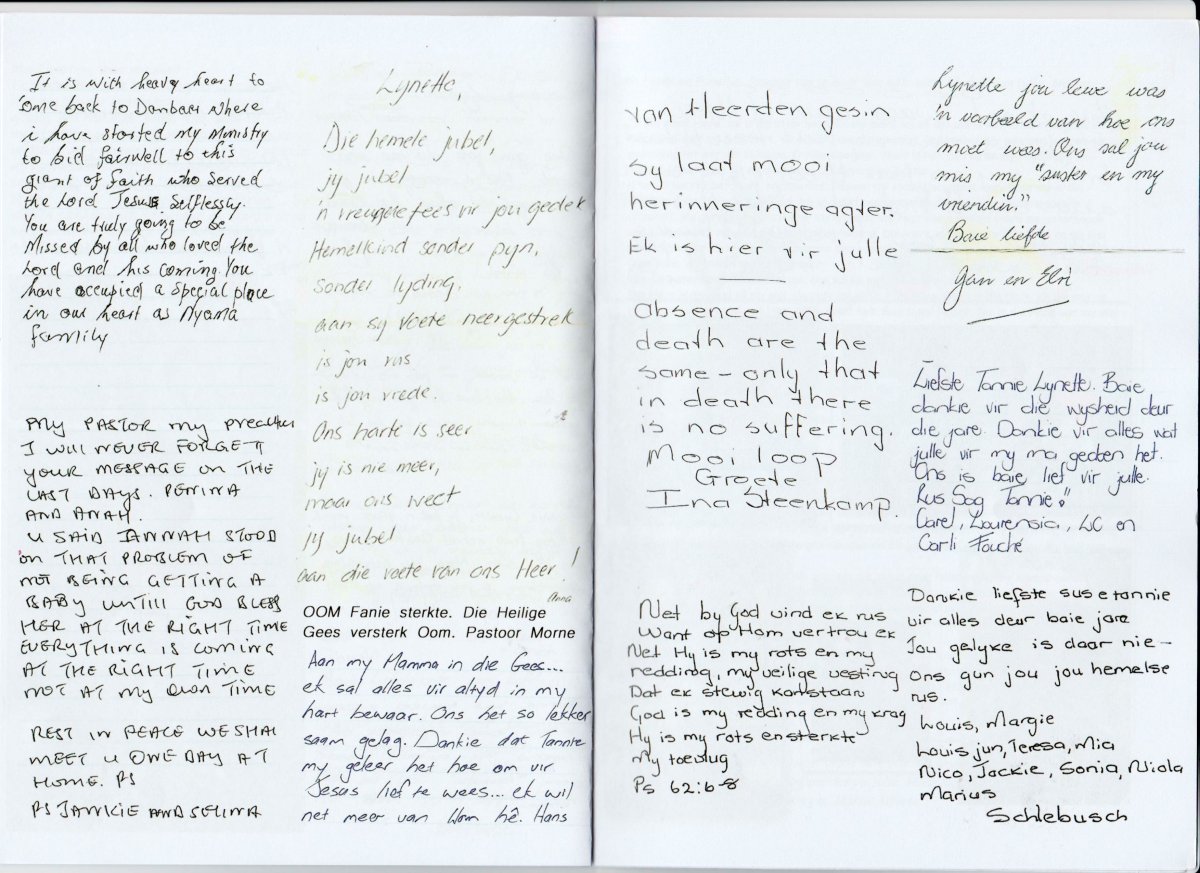 It is with heavy heart to
come back to Danbaer where
i have started my Ministry
to bid fairwell to this
giant of faith who served
the Lord Jesus selflessly.
You are truly going to be
Missed by all who loved the
Lord and his coming. You
have occupied a special place
in our heart as Nyama
family
My PASTOR my preacher
I WILL NEVER FORGETT
YOUR MESSAGE ON THE
LAST DAYS. PENINA
AND ANAH.
U SAID HANNAH STOOD
ON THAT PROBLEM OF
NOT BEING GETTING A
BABY UNTILL GOD BLESS
HER AT THE RIGHT TIME
EVERYTHING IS COMING
AT THE RIGHT TIME
NOT AT MY OWN TIME
REST IN PEACE WE SHAL
MEET U ONE DAY AT
HOME. PS
PS JANKIE AND SELINA
Lynette,
Die hemele jubel,
jy jubel
'n vreugdefees vir jou gedek
Hemelkind sonder pyn,
sonder lyding,
aan sy voete neergestrek
is jou rus
is jou vrede.
Ons harte is seer
jy is nie meer,
maar ons weet
jy jubel
aan die voete van ons Heer!
Anna
OOM Fanie sterkte. Die Heilige
Gees versterk Oom. Pastoor Morne
Aan my Mamma in die Gees....
ek sal alles vir altyd in my
hart bewaar. Ons het so lekker
saam gelag. Dankie dat Tannie
my geleer het hoe om vir
Jesus lief te wees... ek wil
net meer van Hom hê. Hans
van Heerden gesin
sy laat mooi
herinneringe agter.
Ek is hier vir julle
absence and
death are the
same – only that
in death there
is no suffering.
Mooi loop
Groete
Ina Steenkamp.
Net by God vind ek rus
Want op Hom vertrou ek
Net Hy is my rots en my
redding, my veilige vesting
Dat ek stewig kan staan
God is my redding en my krag
Hy is my rots en sterkte
My toevlug
Ps 62:6-8
Lynette jou lewe was
'n voorbeeld van hoe ons
moet wees. Ons sal jou
mis my "suster en my
vriendin."
Baie liefde
Jan en Elri
Liefste Tannie Lynette. Baie
dankie vir die wysheid deur
die jare. Dankie vir alles wat
julle vir my ma gedoen het.
Ons is baie lief vir julle.
Rus Sag Tannie!
Carel, Lourensia, LC en
Carli Fouché
Dankie liefste sus e tannie
vir alles deur baie jare
Jou gelyke is daar nie –
Ons gun jou jou hemelse
rus.
Louis, Margie
Louis jun, Teresa, Mia
Nico, Jackie, Sonia, Niola
Marius
Schlebusch